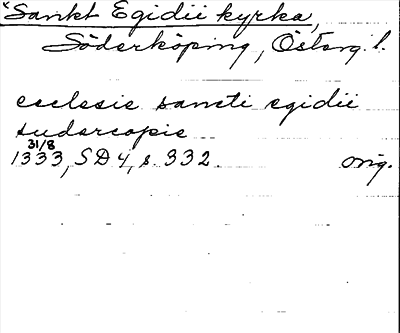 *Sankt Egidii kyrka,
Söderköping, Österg. l.
ecclesie sancti egidii
sudercopie
31/8
1333, SD 4, s. 332 orig.